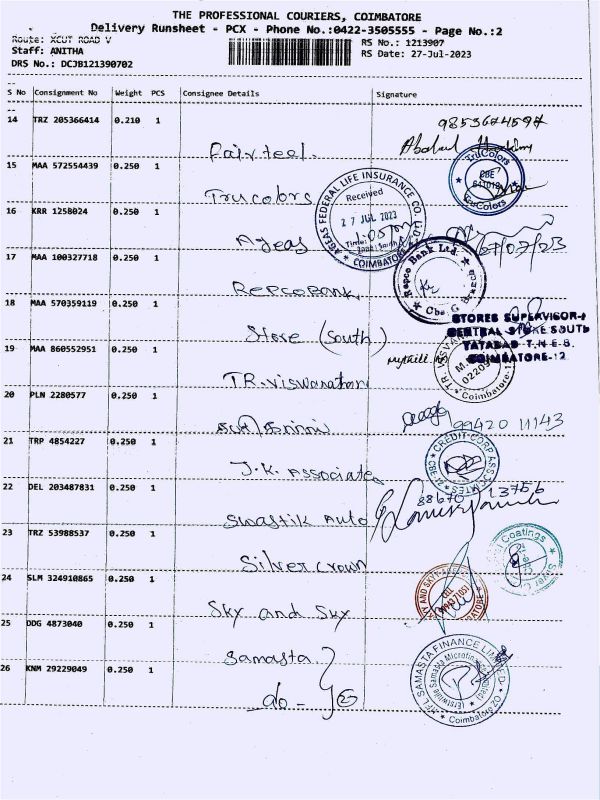 THE PROFESSIONAL COURIERS, COIMBATORE
Delivery Runsheet - PCX - Phone No.:0422-3505555 - Page No.:2
Route: XCUT ROAD V
RS No.: 1213907
Staff: ANITHA
RS Date: 27-Jul-2023
DRS No.: DCJB121390702
S No Consignment No Weight PCS Consignee Details Signature
14 TRZ 205366414 0.210 1
Fairteel.
15 MAA 572554439 0.250 1
TruColors
CBE
TruColors
Trucolors
16 KRR 1258024 0.250 1
AGEAS FEDERAL LIFE INSURANCE CO. LTD
Received
27 JUL 2023
Time: 1:05 pm
COIMBATORE
Ageas
27/07/23
17 MAA 100327718 0.250 1
Repco Bank Ltd.
Cbe. G
RepcoBank
18 MAA 570359119 0.250 1
STORES SUPERVISOR-I
CENTRAL STORE SOUTH
TATABAD T.N.E.B.
COIMBATORE-12
Store (South)
19 MAA 860552951 0.250 1
TR. VISWANA
Coimbatore-1
TR. Viswanathan
20 PLN 2280577 0.250 1
99420 11143
21 TRP 4854227 0.250 1
CREDIT CORP ASSOCIATES
J.K. Associates
22 DEL 203487831 0.250 1
88670 13756
Swastik Auto
23 TRZ 53988537 0.250 1
Coatings
Silver Crown
24 SLM 324910865 0.250 1
SKY AND SKY
Sky and Sky
25 DDG 4873040 0.250 1
Samasta
26 KNM 29229049 0.250 1
IIFL SAMASTA FINANCE LIMITED
(Erstwhile Samasta Microfinance Limited)
Coimbatore ZO
do-